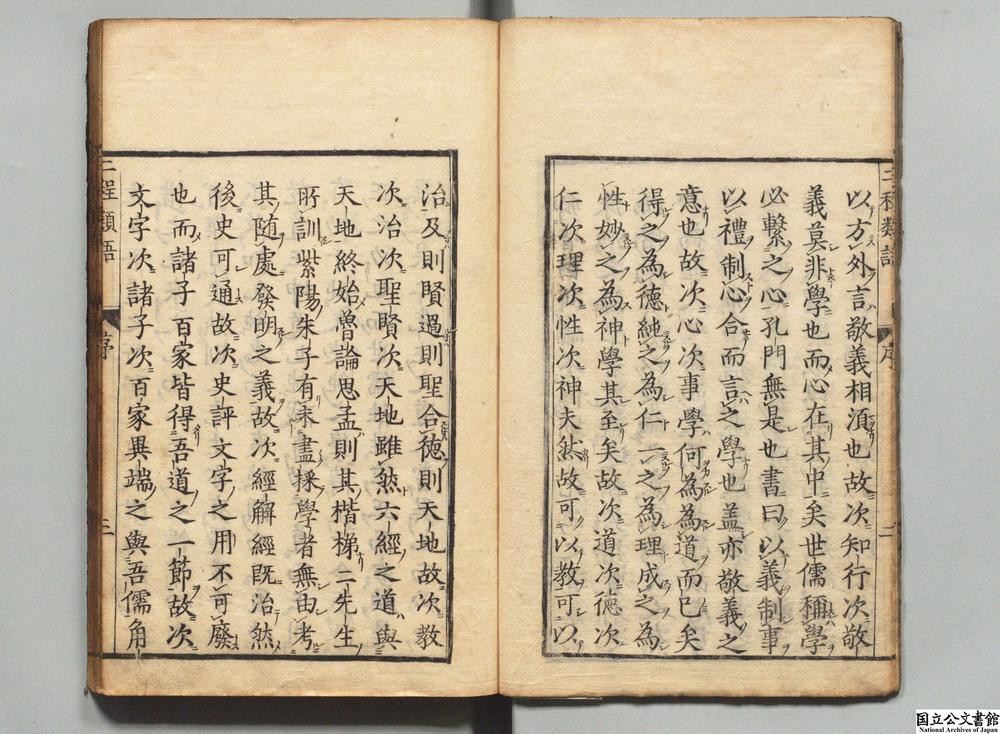 以方外言敬義相須也故次知行次敬
義莫非學也而心在其中矣世儒稱學
必繫之心孔門無是也書曰以義制事
以禮制心合而言之學也盖亦敬義之
意也故次心次事學何為為道而已矣
得之為德純之為仁一之為理成之為
性妙之為神學其至矣故次道次德次
仁次理次性次神夫然故可以教可以
二程類語
序
二
治及則賢過則聖合德則天地故次教
次治次聖賢次天地雖然六經之道與
天地終始魯論思孟則其楷梯二先生
所訓紫陽朱子有未盡採學者無由考
其随處發明之義故次經解經既治然
後史可通故次史評文字之用不可廢
也而諸子百家皆得吾道之一節故次
文字次諸子次百家異端之與吾儒角
二程類語
序
三
国立公文書館
National Archives of Japan